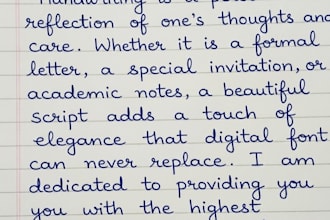 Handwriting is a
reflection of one's thoughts and
care. Whether it is a formal
letter, a special invitation, or
academic notes, a beautiful
script adds a touch of
elegance that digital font
can never replace. I am
dedicated to providing you
you with the highest